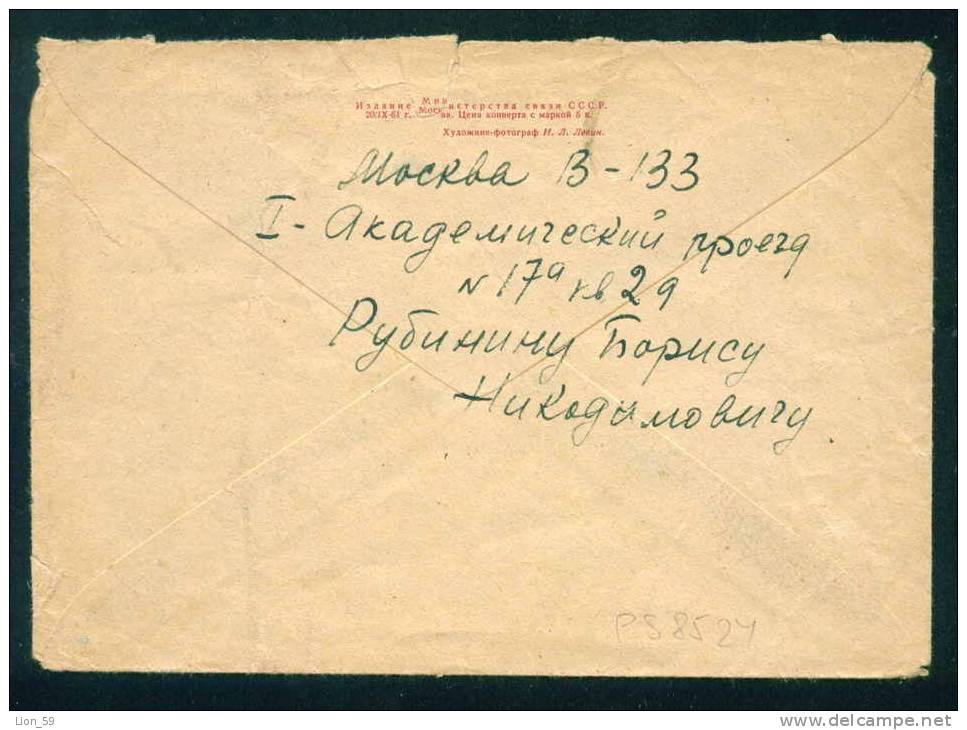 Издание Министерства связи СССР.
20/IX-61 г. Москва. Цена конверта с маркой 5 к.
Художник-фотограф И. Л. Левин.
Москва В-133
I-Академический проезд
N 17а кв 29
Рубинину Борису
Никодимовичу.
PS8524
Lion_59
www.delcampe.net